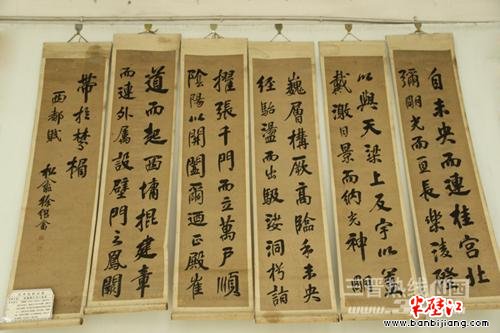 自未央而連桂宮北
彌明光而亘長樂淩隥
以與天梁上反宇以蓋
戴激日景而納光神明
巍層構厥高臨乎未央
經駘盪而出馺娑洞枍詣
擢張千門而立萬戶順
陰陽以開闔爾迺正殿崔
道而超西墉掍建章
而連外屬設璧門之鳳闕
帶於棼楣
西都賦
松盦徐
三晋热线
半壁江
www.banbijiang.com